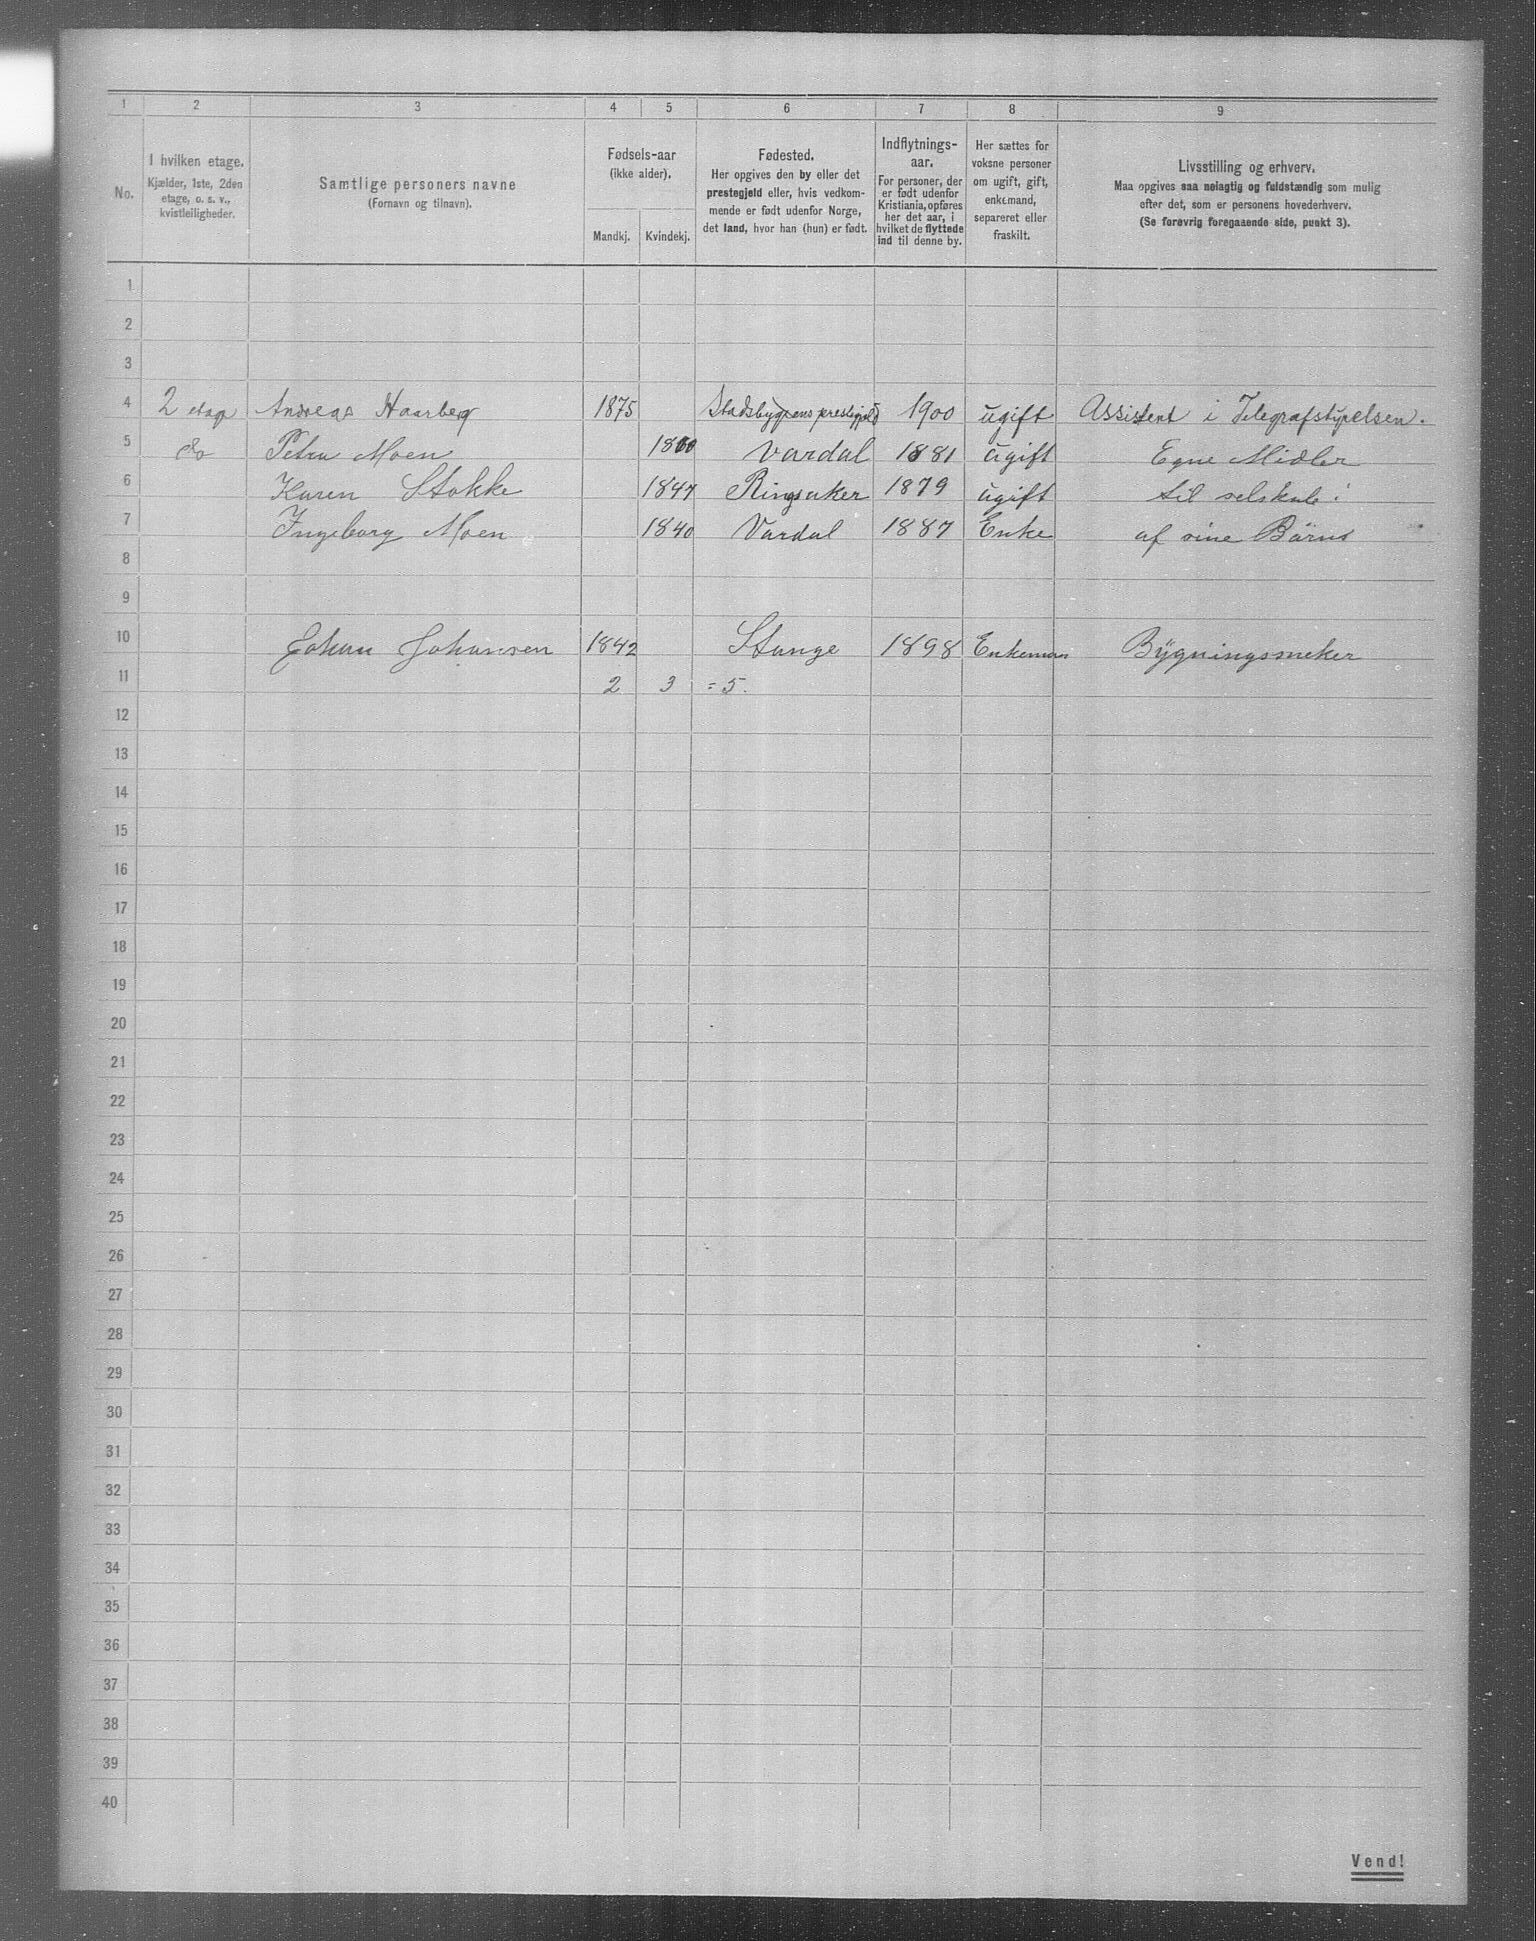 1 2 3 4 5 6 7 8 9
No.
I hvilken etage.
Kjælder, 1ste, 2den
etage, o. s. v.,
kvistleiligheder.
Samtlige personers navne
(Fornavn og tilnavn).
Fødsels-aar
(ikke alder).
Mandkj. Kvindekj.
Fødested.
Her opgives den by eller det
prestegjeld eller, hvis vedkom-
mende er født udenfor Norge,
det land, hvor han (hun) er født.
Indflytnings-
aar.
For personer, der
er født udenfor
Kristiania, opføres
her det aar, i
hvilket de flyttede
ind til denne by.
Her sættes for
voksne personer
om ugift, gift,
enkemand,
separeret eller
fraskilt.
Livsstilling og erhverv.
Maa opgives saa nøiagtig og fuldstændig som mulig
efter det, som er personens hovederhverv.
(Se forøvrig foregaaende side, punkt 3).
1
2
3
4 2 etage Andreas Haarberg 1875 Stadsbygdens prestegjeld 1900 ugift Assistent i Telegrafstyrelsen.
5 do Petra Moen 1860 Vardal 1881 ugift Egne Midler
6 Karen Stokke 1847 Ringsaker 1879 ugift til selskab i
7 Ingeborg Moen 1840 Vardal 1887 Enke af sine Börns
8
9
10 Johan Johansen 1842 Stange 1898 Enkeman Bÿgningssneker
11 2 3 = 5.
12
13
14
15
16
17
18
19
20
21
22
23
24
25
26
27
28
29
30
31
32
33
34
35
36
37
38
39
40
Vend!